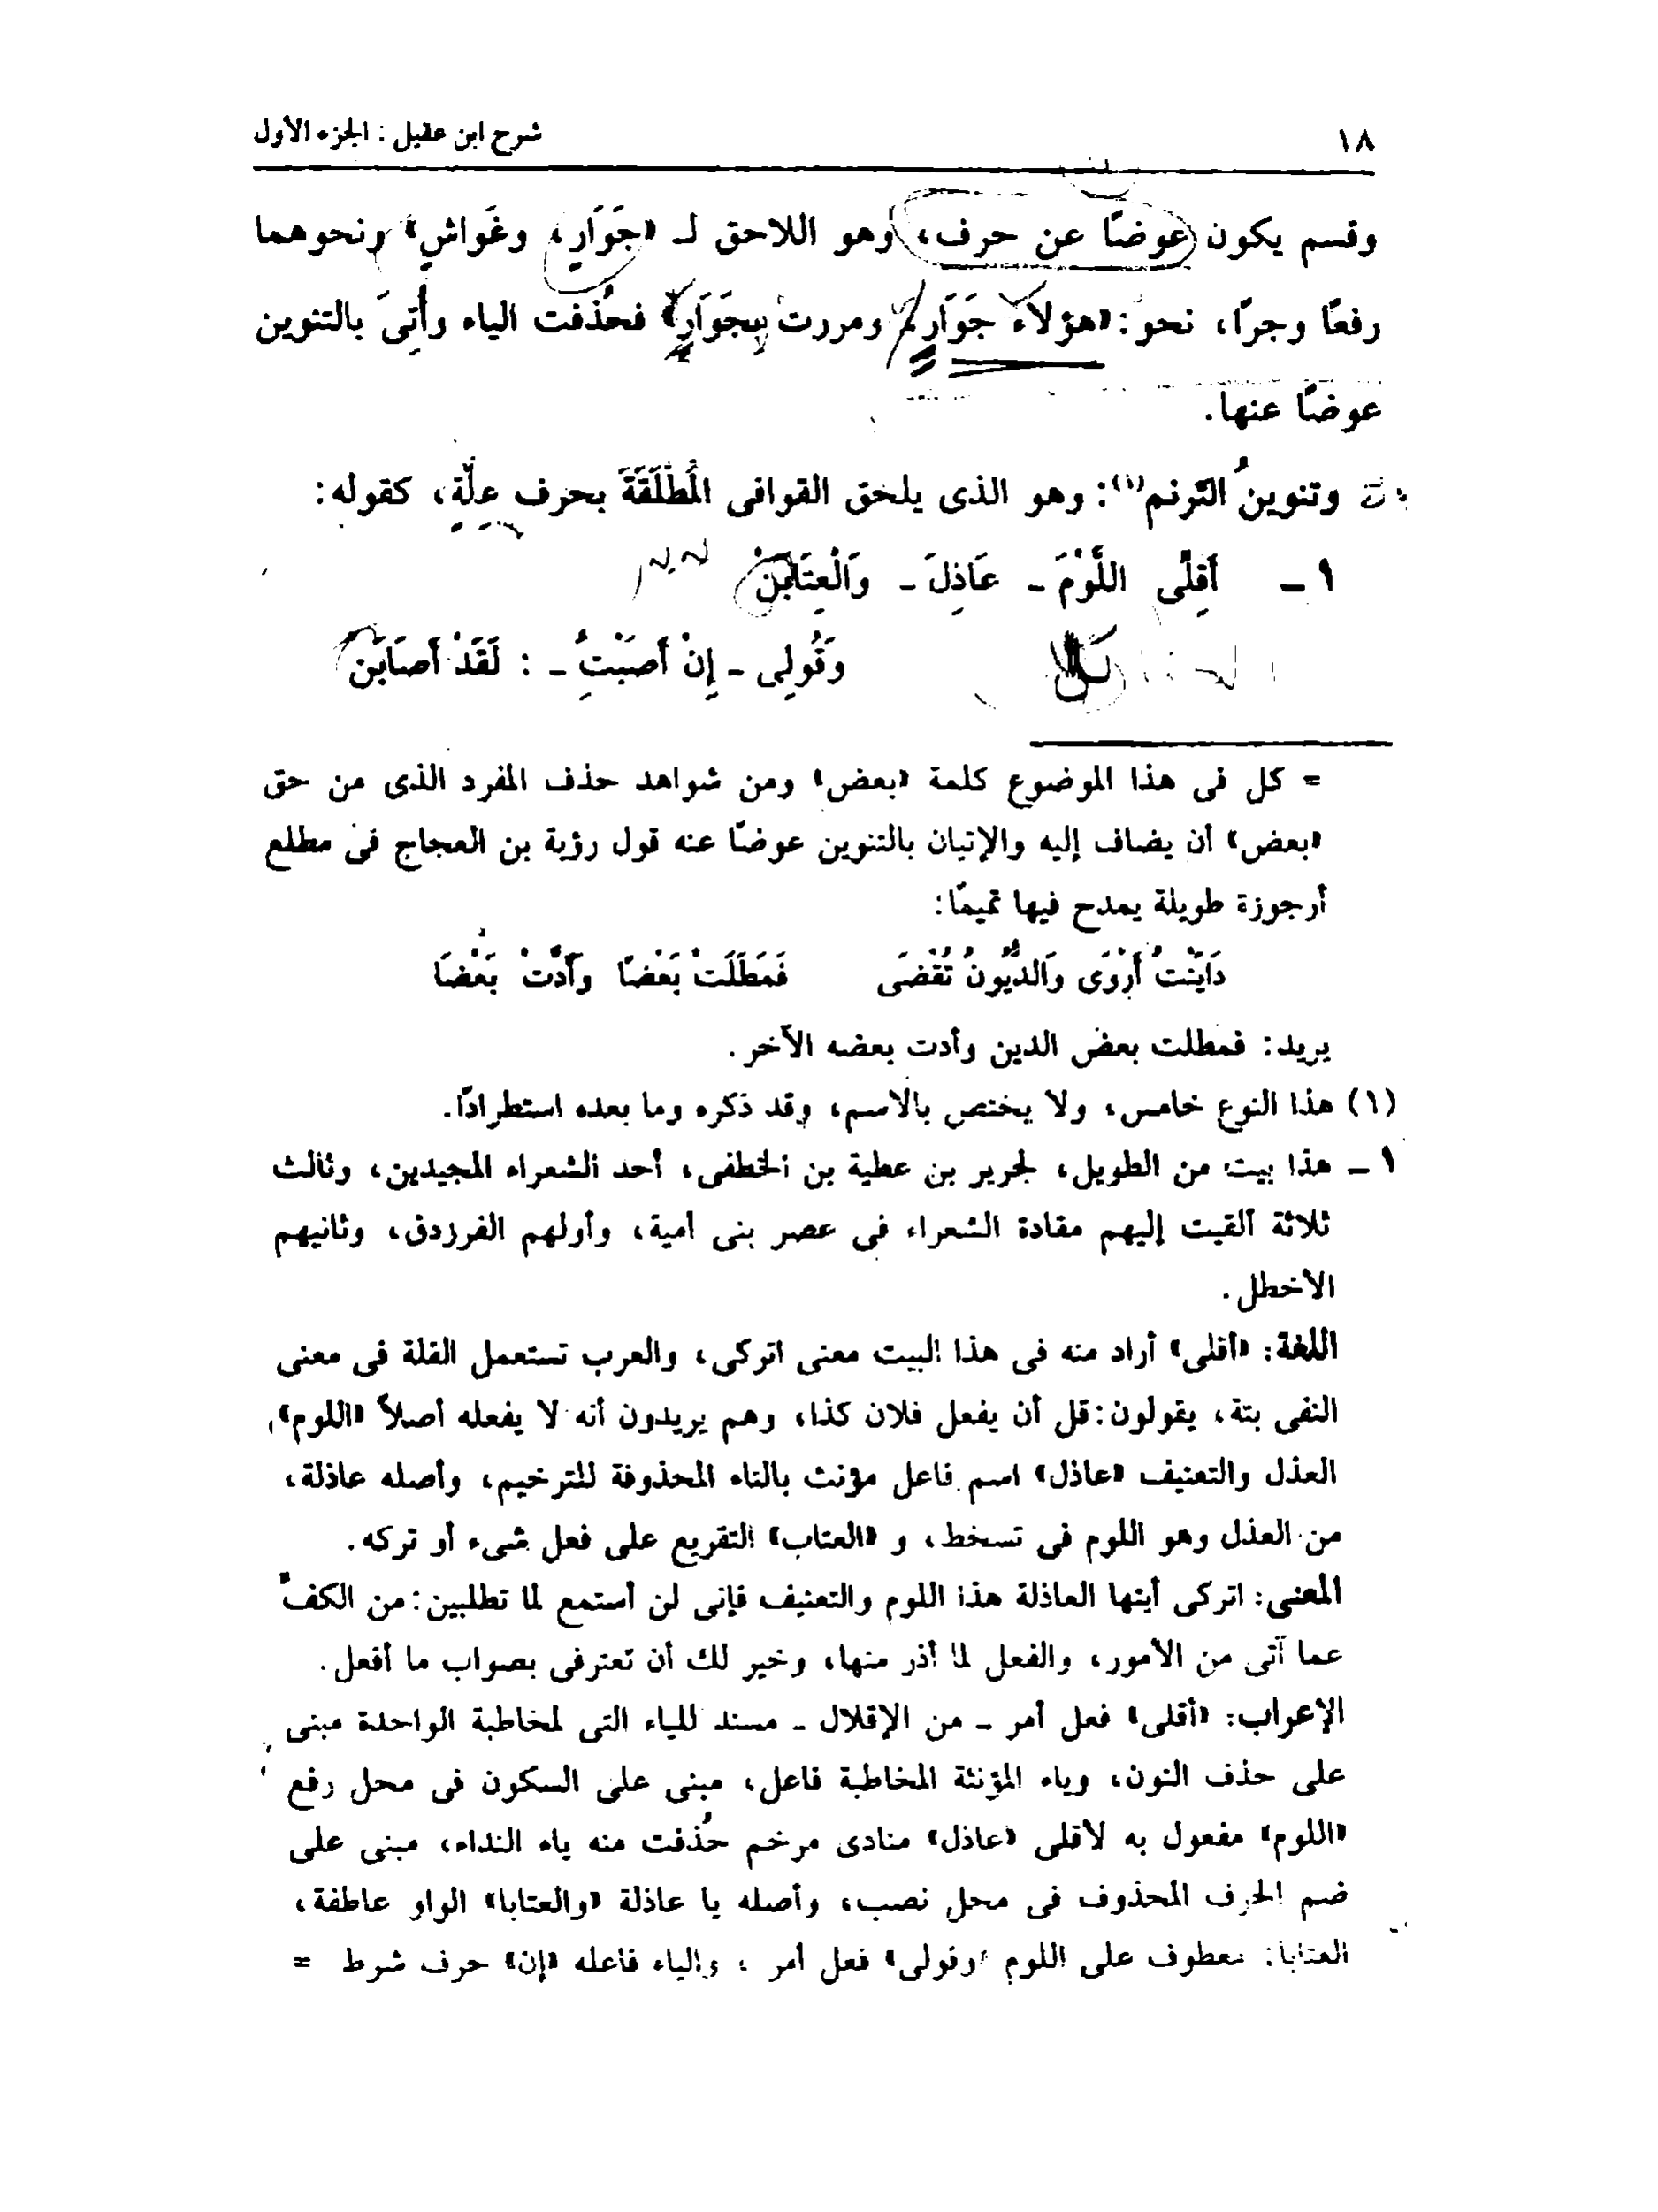 ١٨ شرح ابن عقيل : الجزء الأول
وقسم يكون عوضًا عن حرف، وهو اللاحق لـ «جَوَارٍ، وغَواشٍ» ونحوهما
رفعًا وجرًا، نحو: «هؤلاء جَوَارٍ، ومررت بِجَوَارٍ» فحُذفت الياء وأُتِىَ بالتنوين
عوضًا عنها.
وتنوينُ الترنم(١): وهو الذى يلحق القوافى المُطْلَقَةَ بحرف عِلّةٍ، كقوله:
١ ـ أَقِلِّى اللَّوْمَ ـ عَاذِلَ ـ وَالْعِتَابَنْ
وَقُولِى ـ إِنْ أَصَبْتُِ ـ : لَقَدْ أَصَابَنْ
= كل فى هذا الموضوع كلمة «بعض» ومن شواهد حذف المفرد الذى من حق
«بعض» أن يضاف إليه والإتيان بالتنوين عوضًا عنه قول رؤبة بن العجاج فى مطلع
أرجوزة طويلة يمدح فيها تميمًا:
دَايَنْتُ أَرْوَى وَالدُّيُونُ تُقْضَى فَمَطَلَتْ بَعْضًا وَأَدَّتْ بَعْضَا
يريد: فمطلت بعض الدين وأدت بعضه الآخر.
(١) هذا النوع خامس، ولا يختص بالاسم، وقد ذكره وما بعده استطرادًا.
١ ـ هذا بيت من الطويل، لجرير بن عطية بن الخطفى، أحد الشعراء المجيدين، وثالث
ثلاثة ألقيت إليهم مقادة الشعراء فى عصر بنى أمية، وأولهم الفرزدق، وثانيهم
الأخطل.
اللغة: «أقلى» أراد منه فى هذا البيت معنى اتركى، والعرب تستعمل القلة فى معنى
النفى بتة، يقولون: قل أن يفعل فلان كذا، وهم يريدون أنه لا يفعله أصلاً «اللوم»،
العذل والتعنيف «عاذل» اسم فاعل مؤنث بالتاء المحذوفة للترخيم، وأصله عاذلة،
من العذل وهو اللوم فى تسخط، و «العتاب» التقريع على فعل شىء أو تركه.
المعنى: اتركى أيتها العاذلة هذا اللوم والتعنيف فإنى لن أستمع لما تطلبين: من الكفّ
عما آتى من الأمور، والفعل لما أذر منها، وخير لك أن تعترفى بصواب ما أفعل.
الإعراب: «أقلى» فعل أمر ـ من الإقلال ـ مسند للياء التى لمخاطبة الواحدة مبنى
على حذف النون، وياء المؤنثة المخاطبة فاعل، مبنى على السكون فى محل رفع
«اللوم» مفعول به لأقلى «عاذل» منادى مرخم حُذفت منه ياء النداء، مبنى على
ضم الحرف المحذوف فى محل نصب، وأصله يا عاذلة «والعتابا» الواو عاطفة،
العتابا: معطوف على اللوم «وقولى» فعل أمر ، والياء فاعله «إن» حرف شرط =